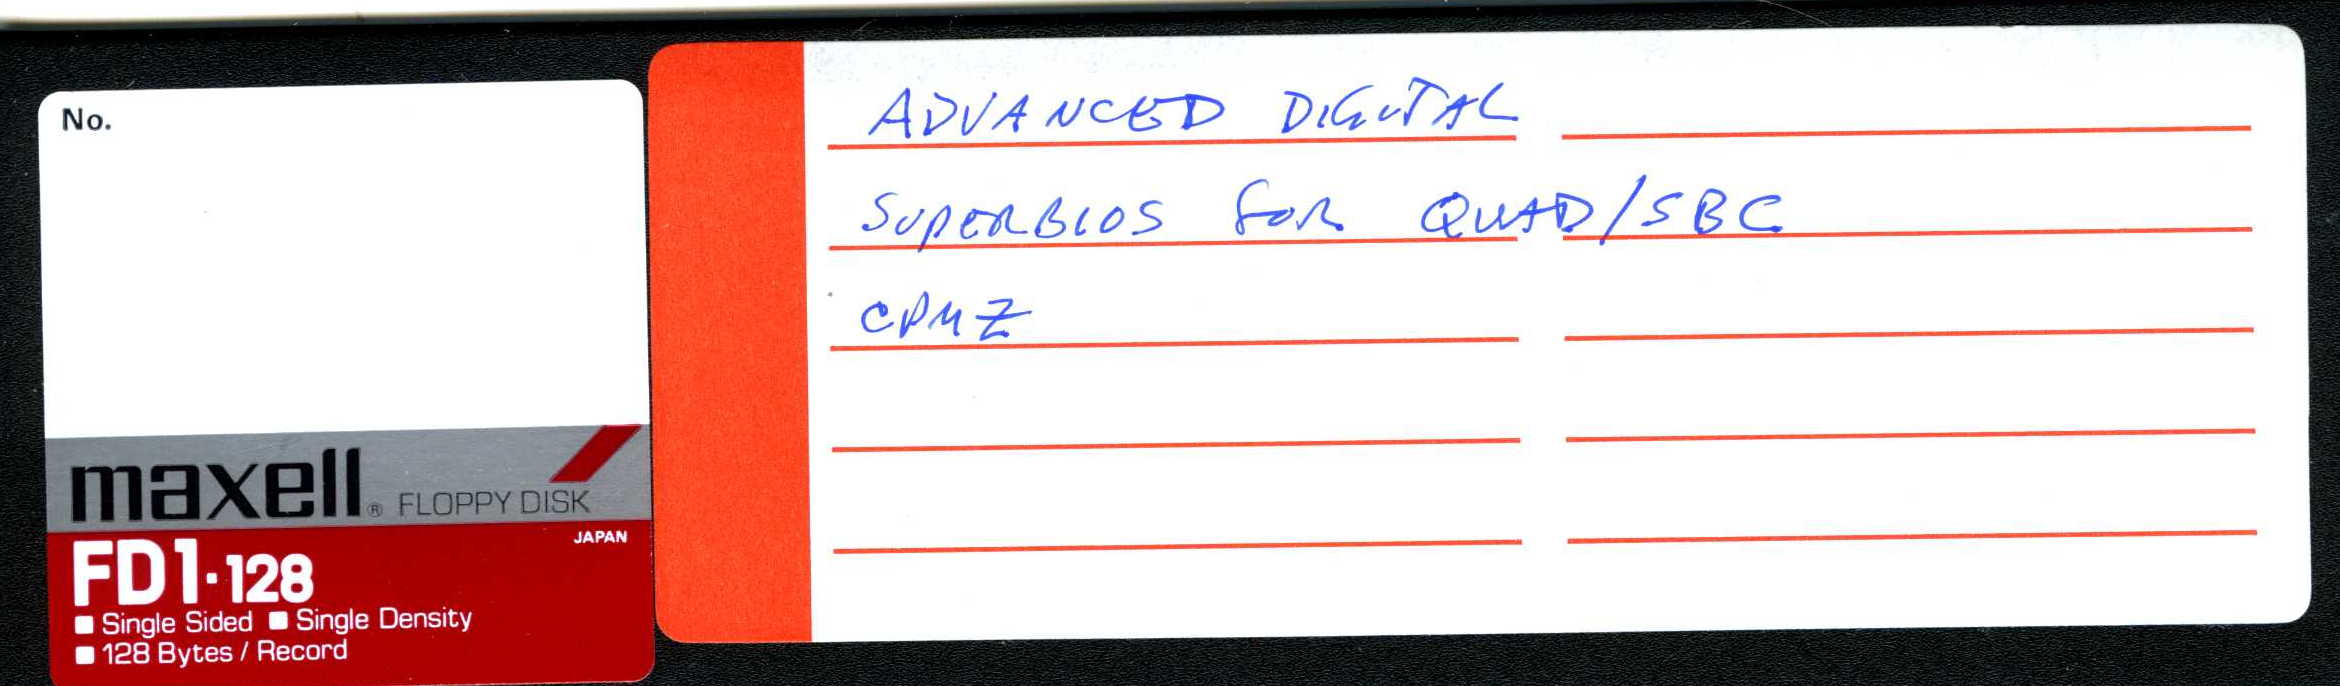 No.
maxell® FLOPPY DISK
JAPAN
FD1-128
Single Sided Single Density
128 Bytes / Record
ADVANCED DIGITAL
SUPERBIOS FOR QUAD/SBC
CPMZ